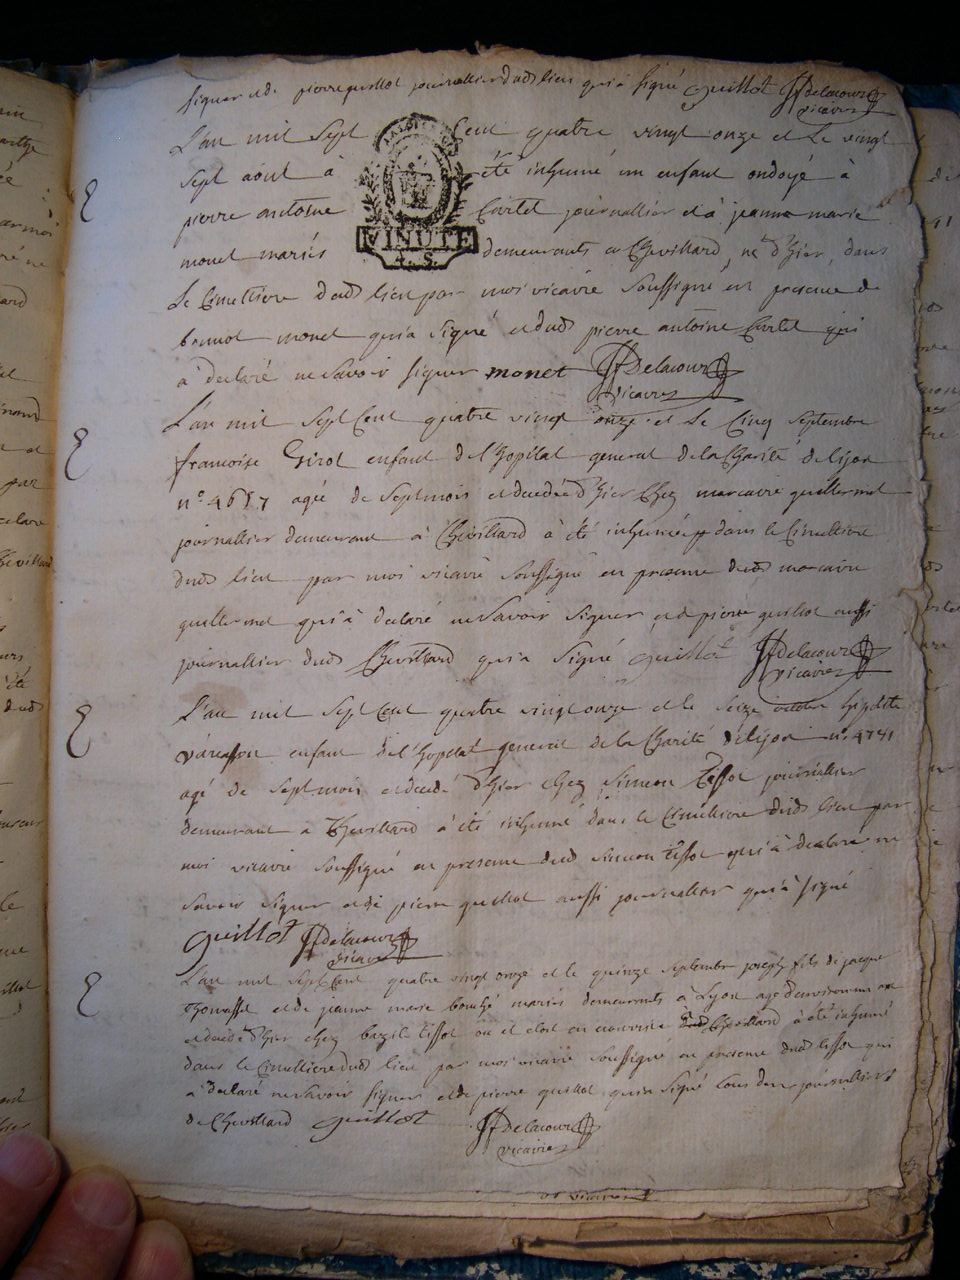 signer et de pierre guillot journallier dud lieu qui a signé guillot JJ delacour
vicaire
L'an mil sept cent quatre vingt onze et le vingt
sept aout à été inhumé un enfant ondoyé à
pierre antoine Curtet journallier et à jeanne marie
monet mariés demeurants a Chevillard, né d'hier, dans
MINUTE
4. S.
le Cimettiere dud lieu par moi vicaire soussigné en presence de
benoit monet qui a signé et dud pierre antoine Curtet qui
a declaré ne savoir signer monet JJ Delacour
vicaire
L'an mil sept Cent quatre vingt onze et le Cinq septembre
francoise Girot enfant de l'hopital general de la Charité de lijon
n° 4657 agée de sept mois et decedée d'hier Chez marcaire guillermet
journallier demeurant à Chevillard à été inhumée dans le Cimettiere
dud lieu par moi vicaire soussigné en presence dud marcaire
guillermet qui à declaré ne savoir signer et de pierre guillot aussi
journallier dud Chevillard qui a signé guillot JJ delacour
vicaire
L'an mil sept Cent quatre vingt onze et le seize octobre hipolite
enfant de l'hopital general de la Charité de lijon n° 4751
agé de sept mois et decedé d'hier chez simeon Tissot journallier
demeurant a Chevillard à été inhumé dans le Cimettiere dud lieu par
moi vicaire soussigné en presence dud simeon tissot qui à declaré ne
savoir signer et de pierre guillot aussi journallier qui à signé
guillot JJ delacour
vicaire
L'an mil sept Cent quatre vingt onze et le quinze septembre joseph fils de jacque
et de jeanne marie mariés demeurants à Lyon agé d'environ un an
et decedé d'hier chez bazil tissot ou il etoit en nourrice Chevillard à été inhumé
dans le Cimettiere dud lieu par moi vicaire soussigné en presence dud tissot qui
a declaré ne savoir signer et de pierre guillot qui a signé tous deux journalliers
de Chevillard guillot JJ delacour
vicaire